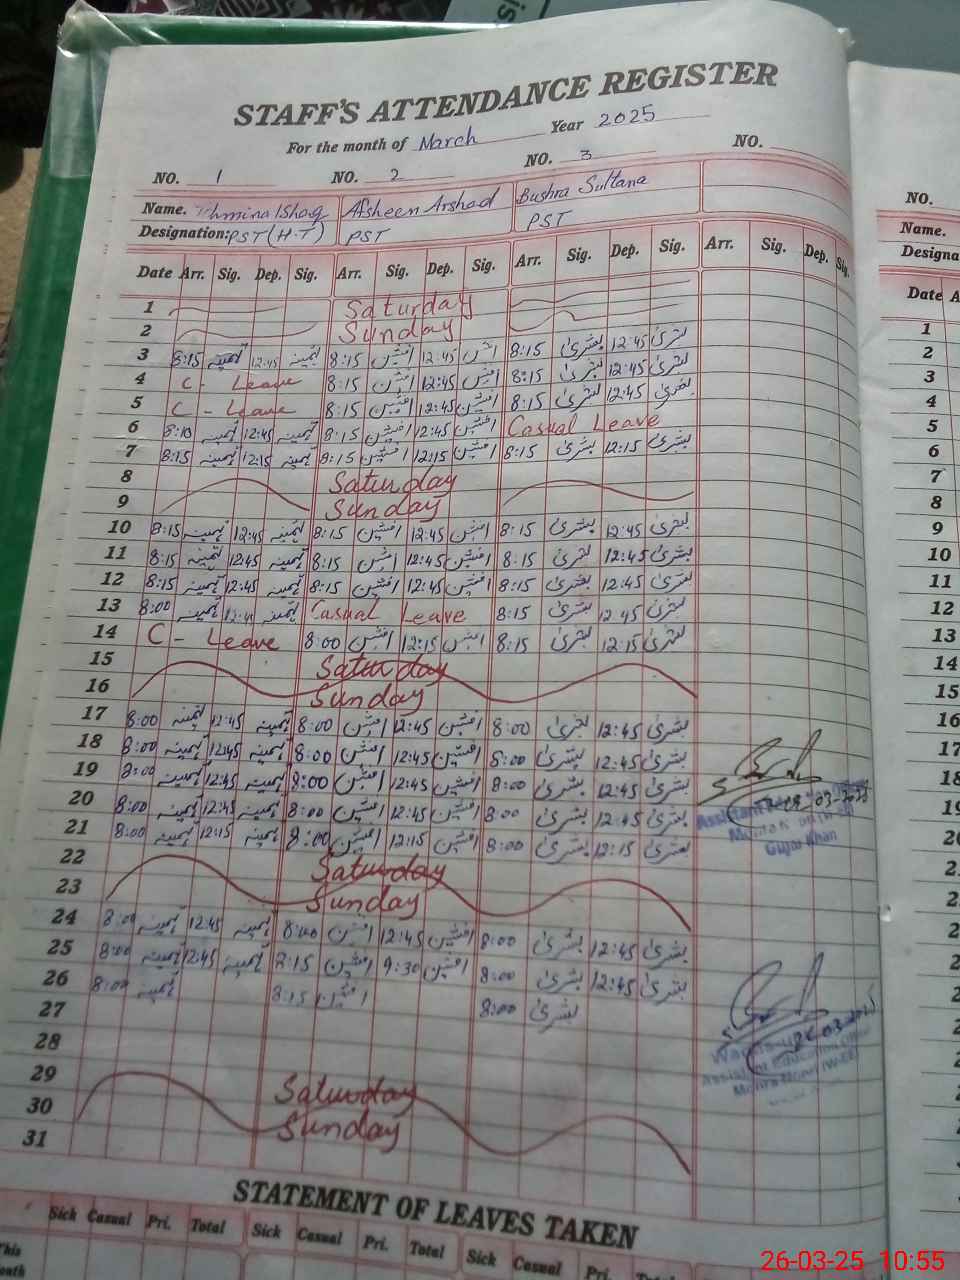 STAFF'S ATTENDANCE REGISTER
For the month of March Year 2025
NO. 1 NO. 2 NO. 3 NO.
Name. Tehmina Ishaq Afsheen Arshad Bushra Sultana
Designation: PST (H.T) PST PST
Date Arr. Sig. Dep. Sig. Arr. Sig. Dep. Sig. Arr. Sig. Dep. Sig. Arr. Sig. Dep. Sig.
1 Saturday
2 Sunday
3 8:15 تہمینہ 12:45 تہمینہ 8:15 افشین 12:45 افشین 8:15 بشریٰ 12:45 بشریٰ
4 C - Leave 8:15 افشین 12:45 افشین 8:15 بشریٰ 12:45 بشریٰ
5 C - Leave 8:15 افشین 12:45 افشین 8:15 بشریٰ 12:45 بشریٰ
6 8:10 تہمینہ 12:45 تہمینہ 8:15 افشین 12:45 افشین Casual Leave
7 8:15 تہمینہ 12:15 تہمینہ 8:15 افشین 12:15 افشین 8:15 بشریٰ 12:15 بشریٰ
8 Saturday
9 Sunday
10 8:15 تہمینہ 12:45 تہمینہ 8:15 افشین 12:45 افشین 8:15 بشریٰ 12:45 بشریٰ
11 8:15 تہمینہ 12:45 تہمینہ 8:15 افشین 12:45 افشین 8:15 بشریٰ 12:45 بشریٰ
12 8:15 تہمینہ 12:45 تہمینہ 8:15 افشین 12:45 افشین 8:15 بشریٰ 12:45 بشریٰ
13 8:00 تہمینہ 12:45 تہمینہ Casual Leave 8:15 بشریٰ 12:45 بشریٰ
14 C - Leave 8:00 افشین 12:15 افشین 8:15 بشریٰ 12:15 بشریٰ
15 Saturday
16 Sunday
17 8:00 تہمینہ 12:45 تہمینہ 8:00 افشین 12:45 افشین 8:00 بشریٰ 12:45 بشریٰ
18 8:00 تہمینہ 12:45 تہمینہ 8:00 افشین 12:45 افشین 8:00 بشریٰ 12:45 بشریٰ
19 8:00 تہمینہ 12:45 تہمینہ 8:00 افشین 12:45 افشین 8:00 بشریٰ 12:45 بشریٰ
20 8:00 تہمینہ 12:45 تہمینہ 8:00 افشین 12:45 افشین 8:00 بشریٰ 12:45 بشریٰ
21 8:00 تہمینہ 12:15 تہمینہ 8:00 افشین 12:15 افشین 8:00 بشریٰ 12:15 بشریٰ
Assistant
Gujar Khan
22 Saturday
23 Sunday
24 8:00 تہمینہ 12:45 تہمینہ 8:00 افشین 12:45 افشین 8:00 بشریٰ 12:45 بشریٰ
25 8:00 تہمینہ 12:45 تہمینہ 8:15 افشین 9:30 افشین 8:00 بشریٰ 12:45 بشریٰ
26 8:00 تہمینہ 8:15 افشین 8:00 بشریٰ
27
28
26.03.2025
Assistant Education Officer
29 Saturday
30 Sunday
31
STATEMENT OF LEAVES TAKEN
Sick Casual Pri. Total Sick Casual Pri. Total Sick Casual Pri. Total
This
NO.
Name.
Designa
Date A
1
2
3
4
5
6
7
8
9
10
11
12
13
14
15
16
17
18
19
26-03-25 10:55